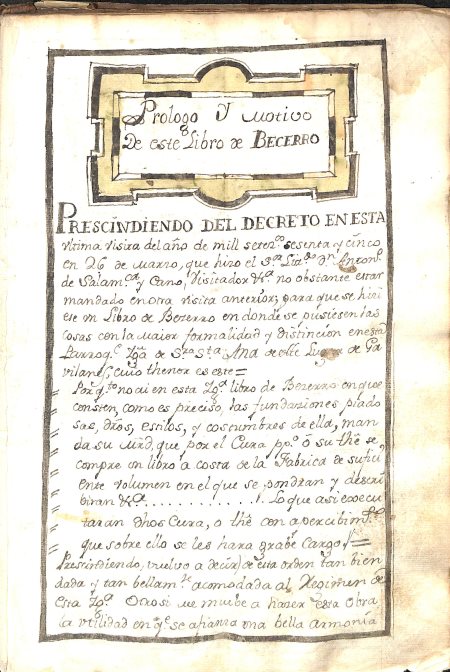 Prologo Y Motivo
De este Libro de BECERRO
PRESCINDIENDO DEL DECRETO EN ESTA
vltima visita del año de mill setezos sesenta y cinco
en 26 de Marzo, que hizo el Sr. Lizdo Dn Antonº
de Salamca y Cano, Visitador &ª no obstante estar
mandado en otra visita anterior; para que se hizi
ese un Libro de Bezerro en donde se pusiesen las
cosas con la maior formalidad y distincion en esta
Parroql Yglª de Sra Sta Ana de este Lugar de Ga
vilanes, cuio thenor es este=
Por qto no ai en esta Yglª libro de Bezerro en que
consten, como es preciso, las fundaziones piado
sas, dros, estilos, y costumbres de ella, man
da su Mrd, que por el Cura ppº ô su thê se
compre un libro a costa de la Fabrica de sufici
ente volumen en el que se pondran y descri
biran &ª . . . . . . . . . . . . . Lo que asi execu
taran dhos Cura, o thê con apercibimto
que sobre ello se les hara grabe Cargo=
Prescindiendo, (vuelvo a decir) de esta orden tan bien
dada y tan bellamte acomodada al Regimen de
esta Yglª Otrosi me muebe a hazer esta Obra
la vtilidad en qe se afianza vna bella armonia